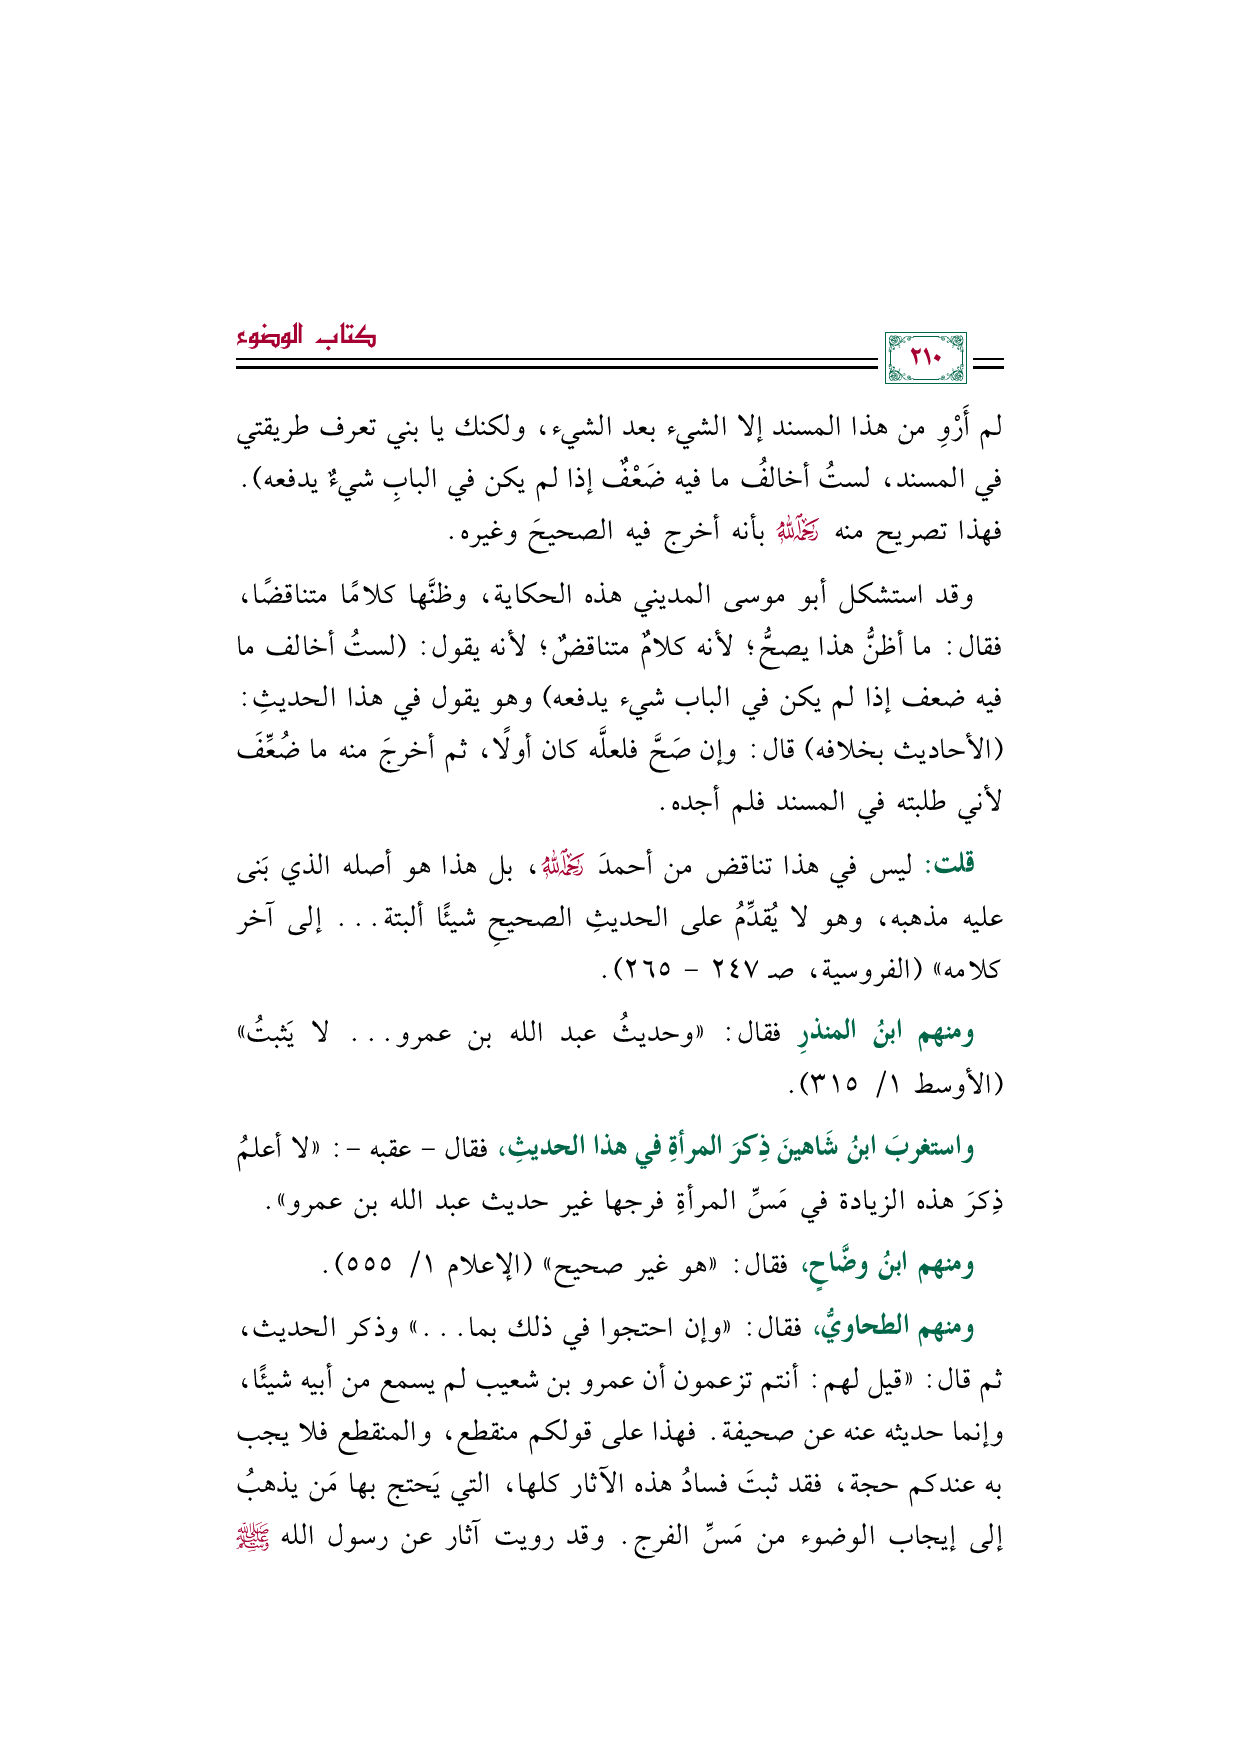 كتاب الوضوء
٢١٠
لم أَرْوِ من هذا المسند إلا الشيء بعد الشيء، ولكنك يا بني تعرف طريقتي
في المسند، لستُ أخالفُ ما فيه ضَعْفٌ إذا لم يكن في البابِ شيءٌ يدفعه).
فهذا تصريح منه رحمه الله بأنه أخرج فيه الصحيحَ وغيره.
وقد استشكل أبو موسى المديني هذه الحكاية، وظنَّها كلامًا متناقضًا،
فقال: ما أظنُّ هذا يصحُّ؛ لأنه كلامٌ متناقضٌ؛ لأنه يقول: (لستُ أخالف ما
فيه ضعف إذا لم يكن في الباب شيء يدفعه) وهو يقول في هذا الحديثِ:
(الأحاديث بخلافه) قال: وإن صَحَّ فلعلَّه كان أولًا، ثم أخرجَ منه ما ضُعِّفَ
لأني طلبته في المسند فلم أجده.
قلت: ليس في هذا تناقض من أحمدَ رحمه الله، بل هذا هو أصله الذي بَنى
عليه مذهبه، وهو لا يُقدِّمُ على الحديثِ الصحيحِ شيئًا ألبتة... إلى آخر
كلامه» (الفروسية، صـ ٢٤٧ - ٢٦٥).
ومنهم ابنُ المنذرِ فقال: «وحديثُ عبد الله بن عمرو... لا يَثبتُ»
(الأوسط ١/ ٣١٥).
واستغربَ ابنُ شَاهينَ ذِكرَ المرأةِ في هذا الحديثِ، فقال - عقبه -: «لا أعلمُ
ذِكرَ هذه الزيادة في مَسِّ المرأةِ فرجها غير حديث عبد الله بن عمرو».
ومنهم ابنُ وضَّاحٍ، فقال: «هو غير صحيح» (الإعلام ١/ ٥٥٥).
ومنهم الطحاويُّ، فقال: «وإن احتجوا في ذلك بما...» وذكر الحديث،
ثم قال: «قيل لهم: أنتم تزعمون أن عمرو بن شعيب لم يسمع من أبيه شيئًا،
وإنما حديثه عنه عن صحيفة. فهذا على قولكم منقطع، والمنقطع فلا يجب
به عندكم حجة، فقد ثبتَ فسادُ هذه الآثار كلها، التي يَحتج بها مَن يذهبُ
إلى إيجاب الوضوء من مَسِّ الفرج. وقد رويت آثار عن رسول الله ﷺ